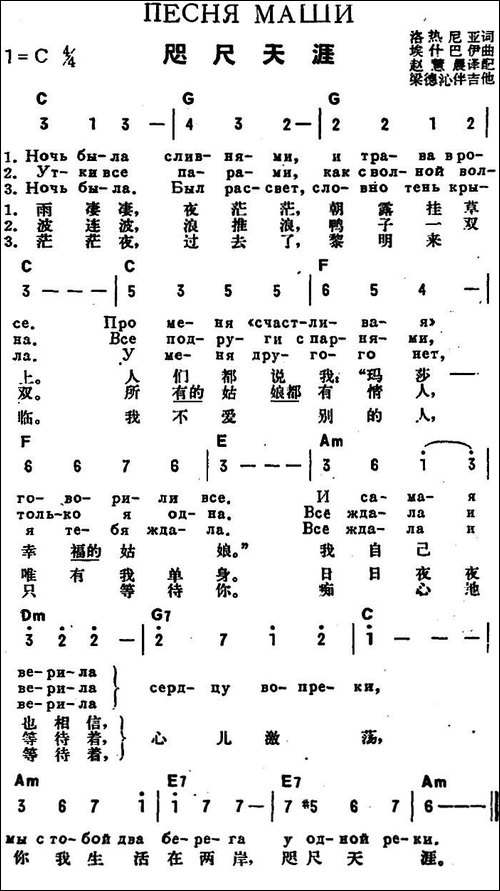 ПЕСНЯ МАШИ
洛热尼亚词
1=C 4/4
咫尺天涯
埃什巴伊曲
赵慧晨译配
梁德沁伴吉他
C G G
3 1 3 — | 4 3 2 — | 2 2 1 2 |
1. Ночь бы-ла слив-ня-ми, и тра-ва в ро-
2. Ут-ки все па-ра-ми, как с вол-ной вол-
3. Ночь бы-ла. Был рас-свет, сло-вно тень кры-
1. 雨凄凄, 夜茫茫, 朝露挂草
2. 波连波, 浪推浪, 鸭子一双
3. 茫茫夜, 过去了, 黎明来
C C F
3 — — — | 5 3 5 5 | 6 5 4 — |
се. Про ме-ня «счаст-ли-ва-я»
на. Все под-ру-ги с пар-ня-ми,
ла. У ме-ня дру-го-го нет,
上。 人们都说我:“玛莎——
双。 所有的姑娘都有情人,
临。 我不爱别的人,
F E Am
6 6 7 6 | 3 — — — | 3 6 i 3 |
го-во-ри-ли все. И са-ма-я
толь-ко я од-на. Все ждала и
я те-бя жда-ла. Все ждала и
幸福的姑娘。” 我自己
唯有我单身。 日日夜夜
只等待你。 痴心池
Dm G7 C
3 2 2 — | 2 7 i 2 | i — — |
ве-ри-ла
ве-ри-ла серд-цу во-пре-ки,
ве-ри-ла
也相信,
等待着, 心儿激荡,
等待着,
Am E7 E7 Am
3 6 7 i | i 7 7 — | 7 #5 6 7 | 6 — — ||
мы с то-бой два бе-ре-га у од-ной ре-ки.
你我生活在两岸, 咫尺天涯。